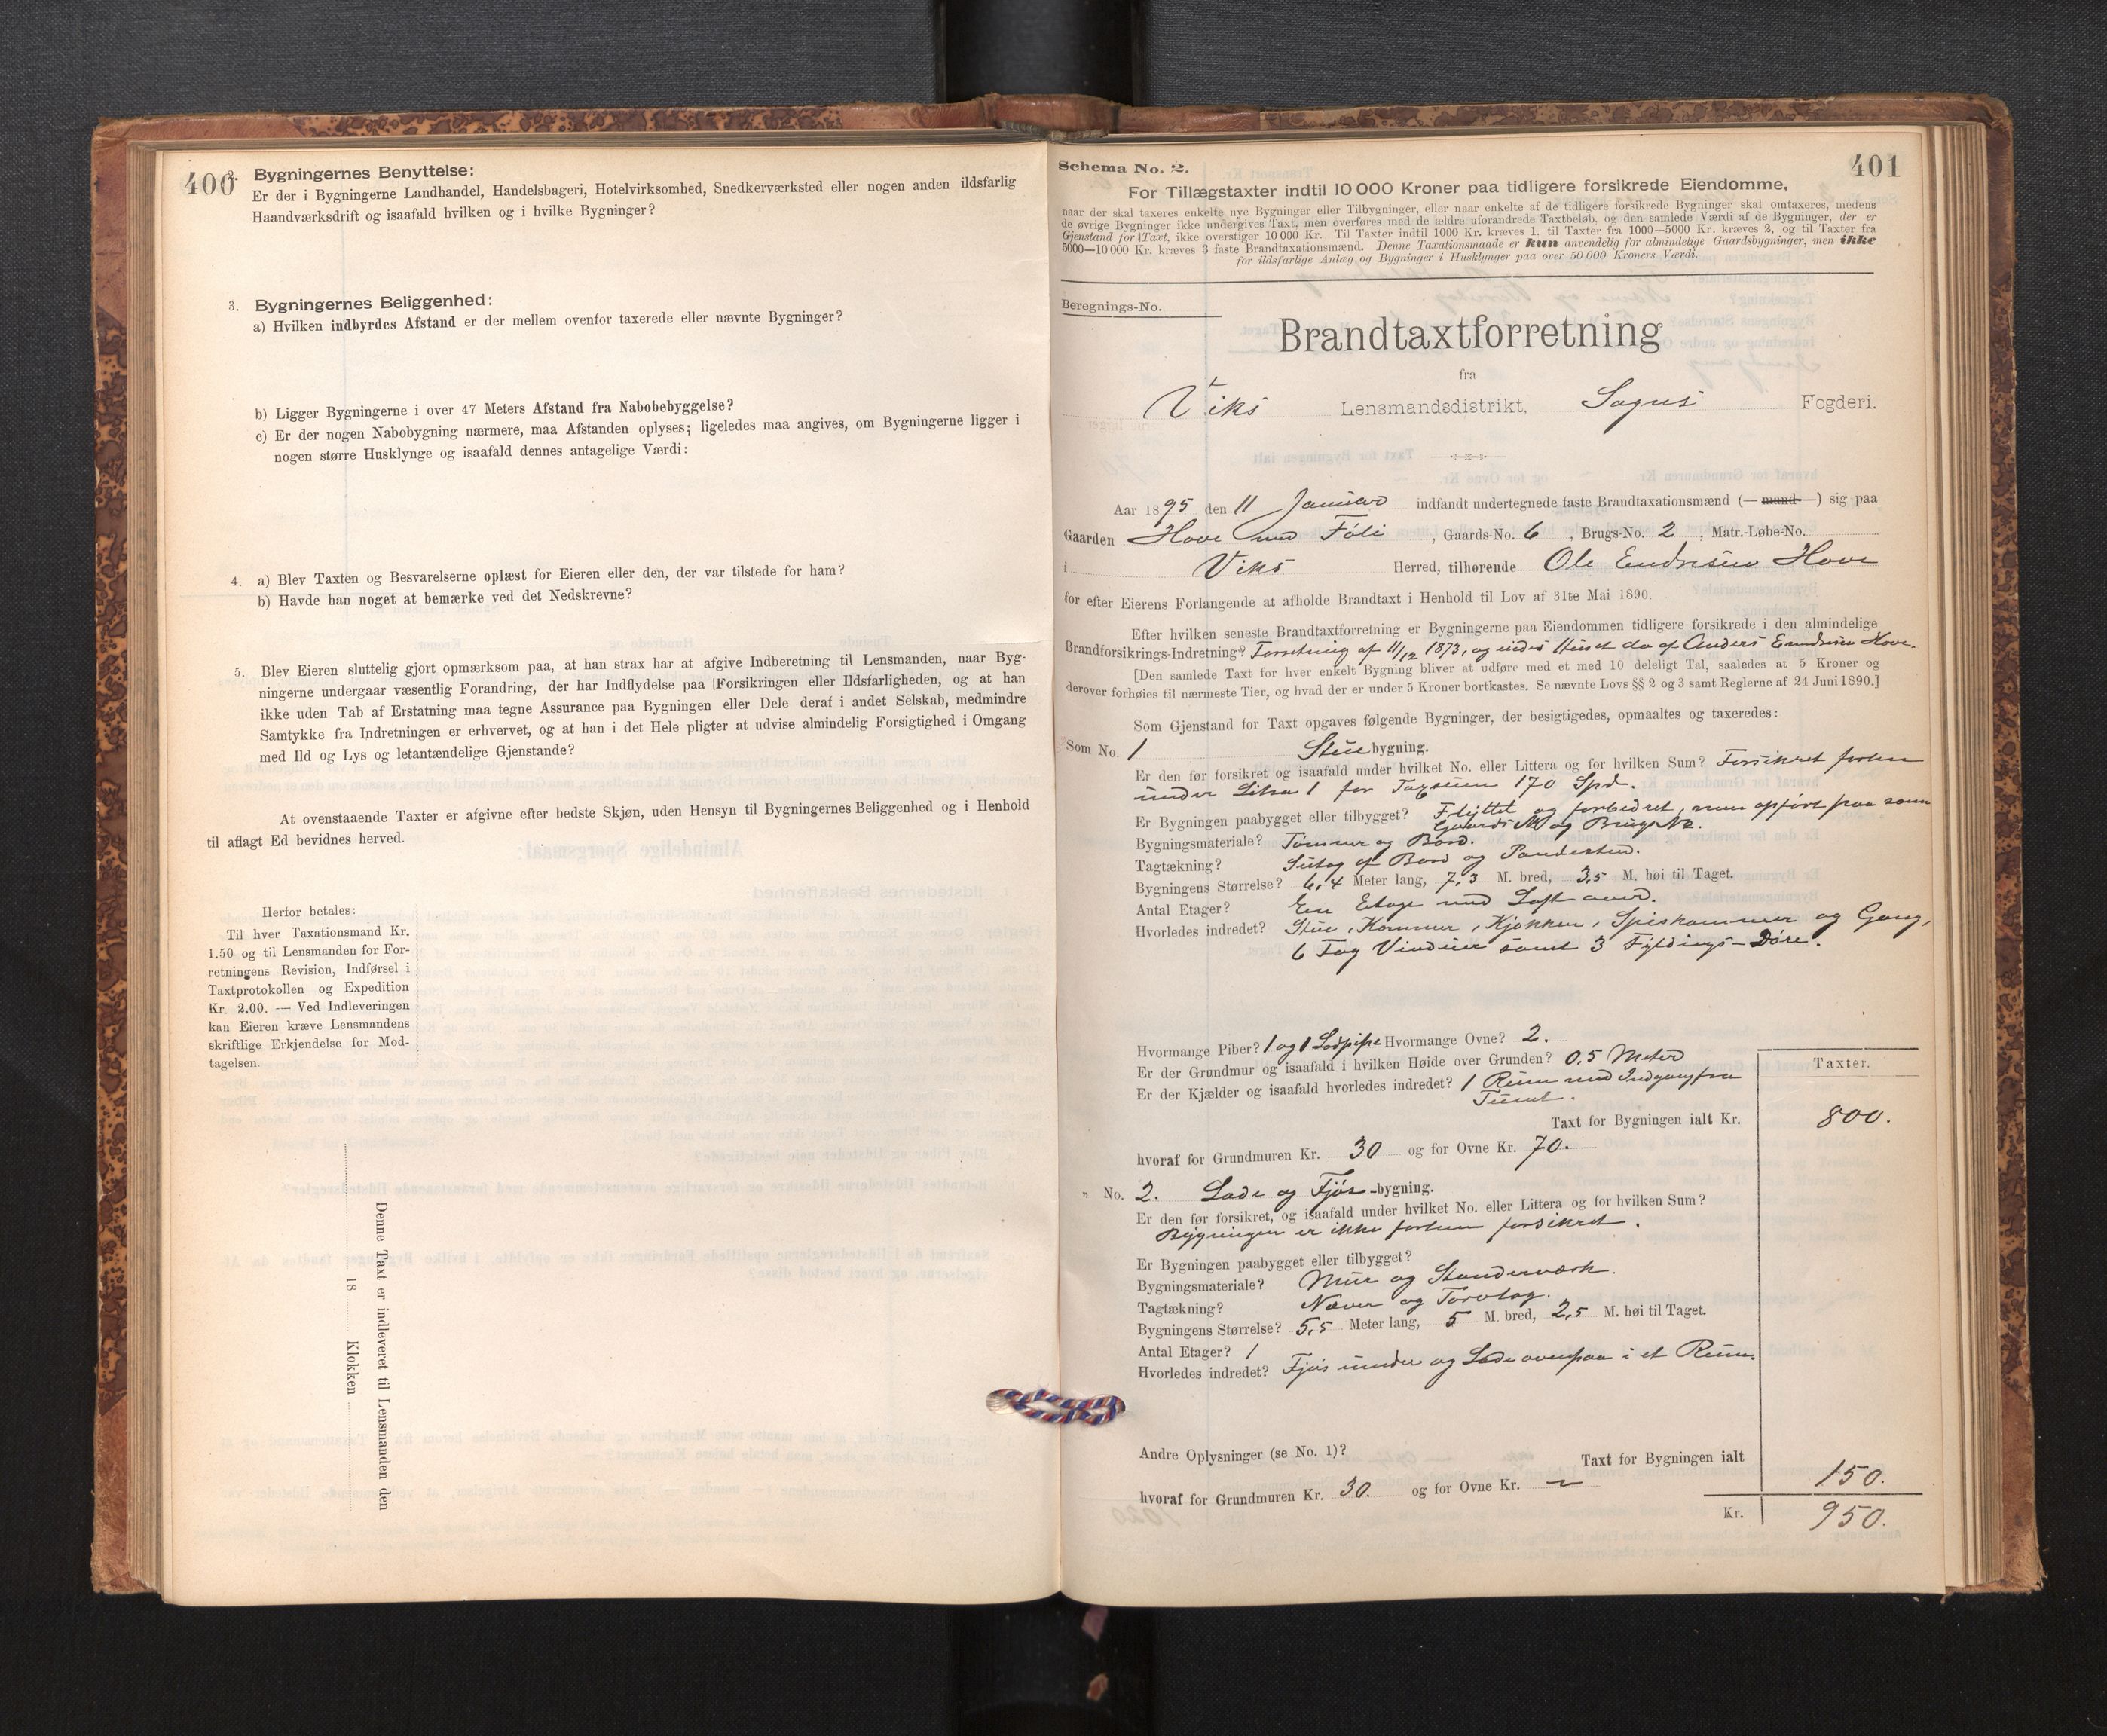 400
2. Bygningernes Benyttelse:
Er der i Bygningerne Landhandel, Handelsbageri, Hotelvirksomhed, Snedkerværksted eller nogen anden ildsfarlig
Haandværksdrift og isaafald hvilken og i hvilke Bygninger?
3. Bygningernes Beliggenhed:
a) Hvilken indbyrdes Afstand er der mellem ovenfor taxerede eller nævnte Bygninger?
b) Ligger Bygningerne i over 47 Meters Afstand fra Nabobebyggelse?
c) Er der nogen Nabobygning nærmere, maa Afstanden oplyses; ligeledes maa angives, om Bygningerne ligger i
nogen større Husklynge og isaafald dennes antagelige Værdi:
4. a) Blev Taxten og Besvarelserne oplæst for Eieren eller den, der var tilstede for ham?
b) Havde han noget at bemærke ved det Nedskrevne?
5. Blev Eieren sluttelig gjort opmærksom paa, at han strax har at afgive Indberetning til Lensmanden, naar Byg-
ningerne undergaar væsentlig Forandring, der har Indflydelse paa Forsikringen eller Ildsfarligheden, og at han
ikke uden Tab af Erstatning maa tegne Assurance paa Bygningen eller Dele deraf i andet Selskab, medmindre
Samtykke fra Indretningen er erhvervet, og at han i det Hele pligter at udvise almindelig Forsigtighed i Omgang
med Ild og Lys og letantændelige Gjenstande?
At ovenstaaende Taxter er afgivne efter bedste Skjøn, uden Hensyn til Bygningernes Beliggenhed og i Henhold
til aflagt Ed bevidnes herved.
Herfor betales:
Til hver Taxationsmand Kr.
1.50 og til Lensmanden for For-
retningens Revision, Indførsel i
Taxtprotokollen og Expedition
Kr. 2.00. — Ved Indleveringen
kan Eieren kræve Lensmandens
skriftlige Erkjendelse for Mod-
tagelsen.
Denne Taxt er indleveret til Lensmanden den
18 Klokken
401
Schema No. 2.
For Tillægstaxter indtil 10 000 Kroner paa tidligere forsikrede Eiendomme,
naar der skal taxeres enkelte nye Bygninger eller Tilbygninger, eller naar enkelte af de tidligere forsikrede Bygninger skal omtaxeres, medens
de øvrige Bygninger ikke undergives Taxt, men overføres med de ældre uforandrede Taxtbeløb, og den samlede Værdi af de Bygninger, der er
Gjenstand for Taxt, ikke overstiger 10 000 Kr. Til Taxter indtil 1000 Kr. kræves 1, til Taxter fra 1000—5000 Kr. kræves 2, og til Taxter fra
5000—10 000 Kr. kræves 3 faste Brandtaxationsmænd. Denne Taxationsmaade er kun anvendelig for almindelige Gaardsbygninger, men ikke
for ildsfarlige Anlæg og Bygninger i Husklynger paa over 50 000 Kroners Værdi.
Beregnings-No.
Brandtaxtforretning
fra
Viks Lensmandsdistrikt, Sogns Fogderi.
Aar 1895 den 11 Januar indfandt undertegnede faste Brandtaxationsmænd (— mand —) sig paa
Gaarden Hove med Føli, Gaards-No. 6, Brugs-No. 2, Matr.-Løbe-No.
i Viks Herred, tilhørende Ole Endresen Hove
for efter Eierens Forlangende at afholde Brandtaxt i Henhold til Lov af 31te Mai 1890.
Efter hvilken seneste Brandtaxtforretning er Bygningerne paa Eiendommen tidligere forsikrede i den almindelige
Brandforsikrings-Indretning? Forretning af 11/12 1873, og eiedes Huset da af Anders Endresen Hove.
[Den samlede Taxt for hver enkelt Bygning bliver at udføre med et med 10 deleligt Tal, saaledes at 5 Kroner og
derover forhøies til nærmeste Tier, og hvad der er under 5 Kroner bortkastes. Se nævnte Lovs §§ 2 og 3 samt Reglerne af 24 Juni 1890.]
Som Gjenstand for Taxt opgaves følgende Bygninger, der besigtigedes, opmaaltes og taxeredes:
Som No. 1 Stue bygning.
Er den før forsikret og isaafald under hvilket No. eller Littera og for hvilken Sum? Forsikret forhen
under Litra 1 for Taxsum 170 Spd.
Er Bygningen paabygget eller tilbygget? Flyttet og forbedret, men opført paa samme
Gaards No og Brugs No.
Bygningsmateriale? Tømmer og Bord.
Tagtækning? Sutag af Bord og Pandesten.
Bygningens Størrelse? 6,4 Meter lang, 7,3 M. bred, 3,5 M. høi til Taget.
Antal Etager? En Etage med Loft over.
Hvorledes indredet? Stue, Kammer, Kjøkken, Spiskammer og Gang,
6 Fag Vinduer samt 3 Fyldings-Døre.
Hvormange Piber? 1 og 1 Lodpipe Hvormange Ovne? 2.
Er der Grundmur og isaafald i hvilken Høide over Grunden? 0,5 Meter
Er der Kjælder og isaafald hvorledes indredet? 1 Rum med Indgang fra
Tunet.
Taxter.
Taxt for Bygningen ialt Kr. 800.
hvoraf for Grundmuren Kr. 30 og for Ovne Kr. 70.
" No. 2. Lade og Fjøs-bygning.
Er den før forsikret, og isaafald under hvilket No. eller Littera og for hvilken Sum?
Bygningen er ikke forhen forsikret.
Er Bygningen paabygget eller tilbygget?
Bygningsmateriale? Mur og Standerværk.
Tagtækning? Næver og Torvtag.
Bygningens Størrelse? 5,5 Meter lang, 5 M. bred, 2,5 M. høi til Taget.
Antal Etager? 1
Hvorledes indredet? Fjøs under og Lade ovenpaa i et Rum.
Andre Oplysninger (se No. 1)?
Taxt for Bygningen ialt 150.
hvoraf for Grundmuren Kr. 30. og for Ovne Kr. —
Kr. 950.